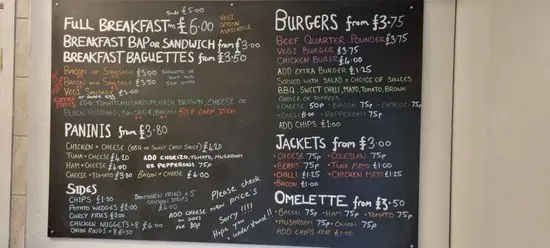 Small £5.00
FULL BREAKFAST £6.00
VEGI OPTION AVAILABLE
BREAKFAST BAP OR SANDWICH from £3.00
BREAKFAST BAGUETTES from £3.50
BACON OR SAUSAGE £3.00
BACON AND SAUSAGE £3.50
VEGI SAUSAGE £3.00
EXTRA ITEMS
EGG, TOMATO, MUSHROOM, HASH BROWN, CHEESE OR
BLACK PUDDING, SAUSAGE, BACON 50p EACH ITEM
PANINIS from £3.80
CHICKEN + CHEESE (BBQ OR SWEET CHILLI SAUCE) £4.20
TUNA + CHEESE £4.20
HAM + CHEESE £4.00
CHEESE + TOMATO £3.80
ADD CHORIZO, TOMATO, MUSHROOM
OR PEPPERONI 75p
BACON + CHEESE £4.00
SIDES
CHIPS £1.50
POTATO WEDGES £2.00
CURLY FRIES £2.00
CHICKEN NUGGETS × 8 £4.00
ONION RINGS × 8 £1.50
SOUTHERN FRIED × 5
CHICKEN STRIPS
£4.00
ADD CHEESE
ON SIDES
FOR 80p
Please check
new price's
Sorry !!!!
Hope you understand!!
BURGERS from £3.75
BEEF QUARTER POUNDER £3.75
VEGI BURGER £3.75
CHICKEN BURGER £4.00
ADD EXTRA BURGER £1.25
SERVED WITH SALAD + CHOICE OF SAUCES
BBQ, SWEET CHILLI, MAYO, TOMATO, BROWN
CHOICE OF TOPPERS
• CHEESE 50p • BACON 75p • CHORIZO 75p
• CHILLI £1.00 • PEPPERONI 75p
ADD CHIPS £1.00
JACKETS from £3.00
• CHEESE 75p • COLESLAW 75p
• BEANS 75p • TUNA MAYO £1.00
• CHILLI £1.25 • CHICKEN MAYO £1.25
• BACON £1.00
OMELETTE from £3.50
• BACON 75p • HAM 75p • TOMATO
• MUSHROOM 75p • ONION 75p
ADD CHIPS FOR £1.00